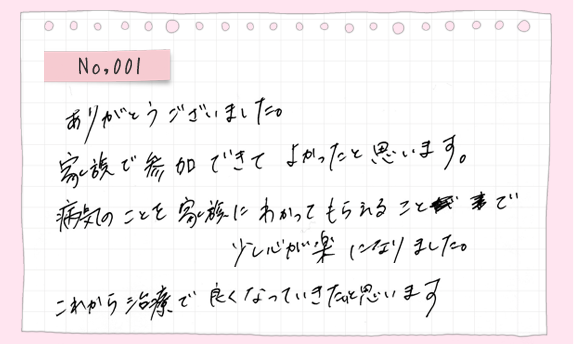 No,001
ありがとうございました。
家族で参加できて よかったと思います。
病気のことを家族にわかってもらえることで
少し心が楽になりました。
これから治療で良くなっていきたいと思います